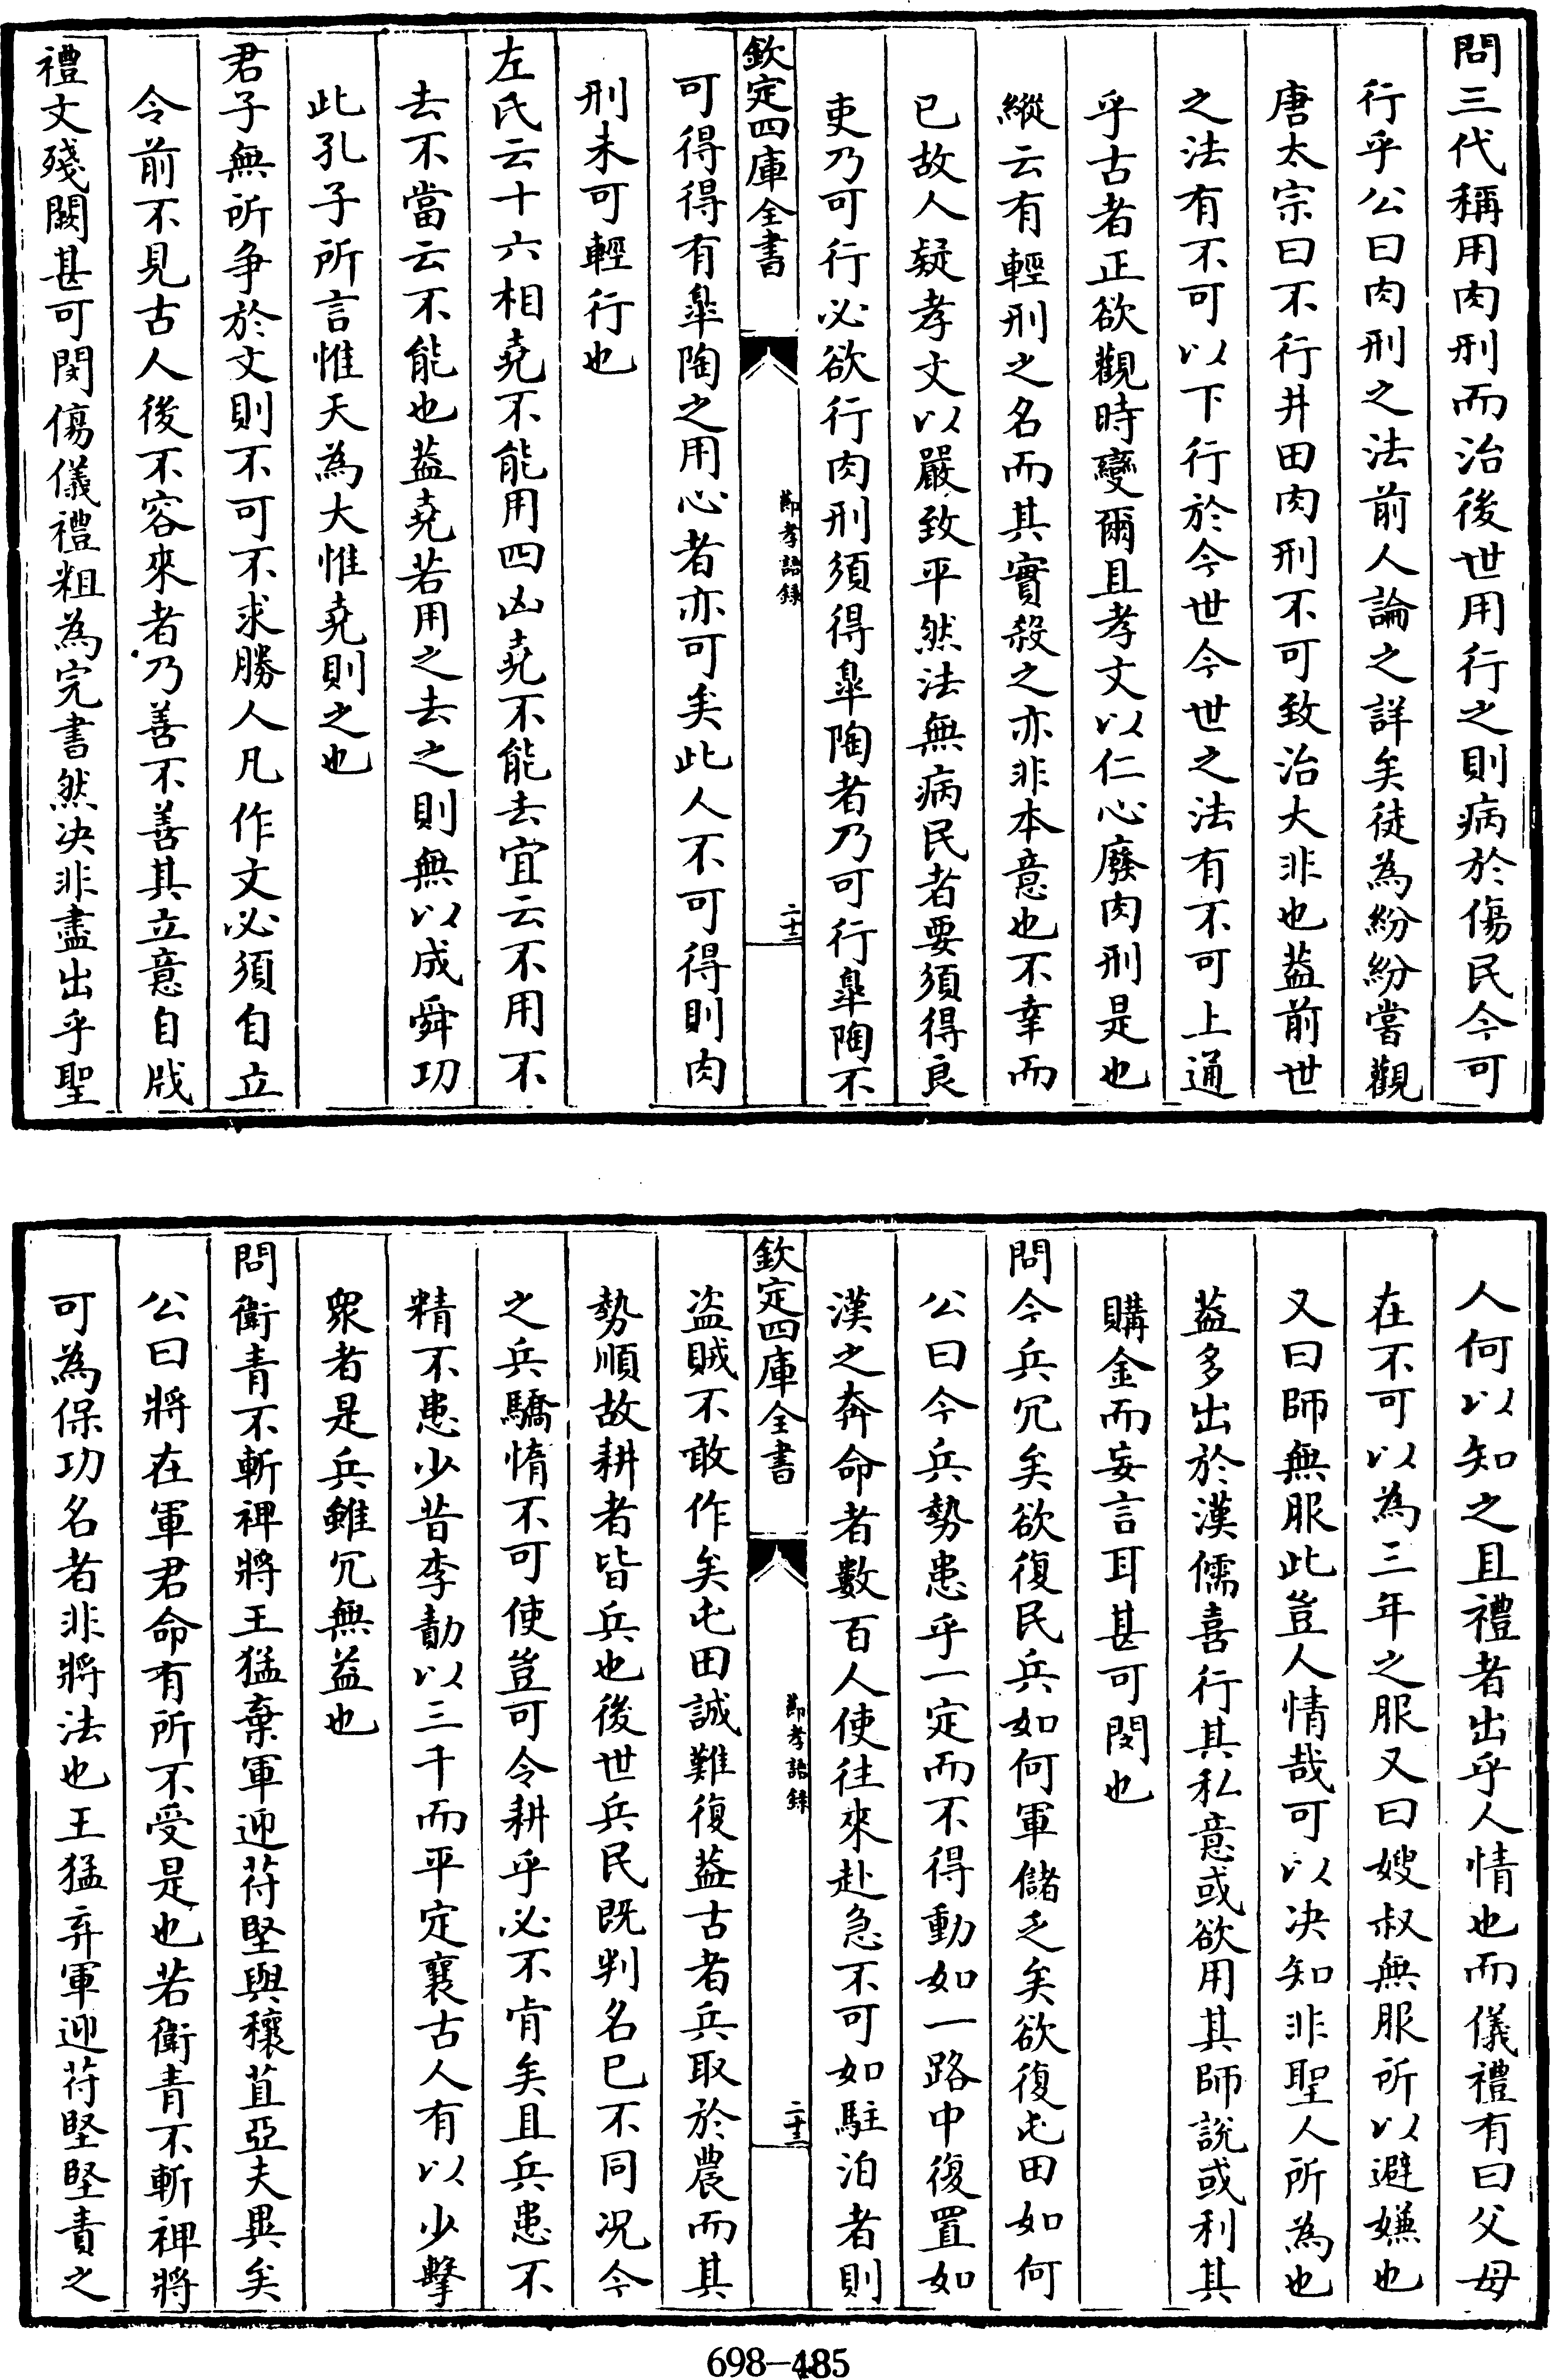 問三代稱用肉刑而治後世用行之則病於傷民今可
行乎公曰肉刑之法前人論之詳矣徒為紛紛嘗觀
唐太宗曰不行井田肉刑不可致治大非也葢前世
之法有不可以下行於今世今世之法有不可上通
乎古者正欲觀時變爾且孝文以仁心廢肉刑是也
縱云有輕刑之名而其實殺之亦非本意也不幸而
已故人疑孝文以嚴致平然法無病民者要須得良
吏乃可行必欲行肉刑須得臯陶者乃可行臯陶不
欽定四庫全書
節孝語錄
二十二
可得得有臯陶之用心者亦可矣此人不可得則肉
刑未可輕行也
左氏云十六相堯不能用四凶堯不能去宜云不用不
去不當云不能也葢堯若用之去之則無以成舜功
此孔子所言惟天為大惟堯則之也
君子無所爭於文則不可不求勝人凡作文必須自立
令前不見古人後不容來者乃善不善其立意自戕
禮文殘闕甚可閔傷儀禮粗為完書然决非盡出乎聖
人何以知之且禮者出乎人情也而儀禮有曰父母
在不可以為三年之服又曰嫂叔無服所以避嫌也
又曰師無服此豈人情哉可以决知非聖人所為也
葢多出於漢儒喜行其私意或欲用其師說或利其
購金而妄言耳甚可閔也
問今兵冗矣欲復民兵如何軍儲乏矣欲復屯田如何
公曰今兵勢患乎一定而不得動如一路中復置如
漢之奔命者數百人使往來赴急不可如駐泊者則
欽定四庫全書
節孝語錄
二十三
盜賊不敢作矣屯田誠難復葢古者兵取於農而其
勢順故耕者皆兵也後世兵民既判名已不同况今
之兵驕惰不可使豈可令耕乎必不肯矣且兵患不
精不患少昔李勣以三千而平定襄古人有以少擊
衆者是兵雖冗無益也
問衛青不斬裨將王猛棄軍迎苻堅與穰苴亞夫異矣
公曰將在軍君命有所不受是也若衛青不斬裨將
可為保功名者非將法也王猛弃軍迎苻堅堅責之
698-485